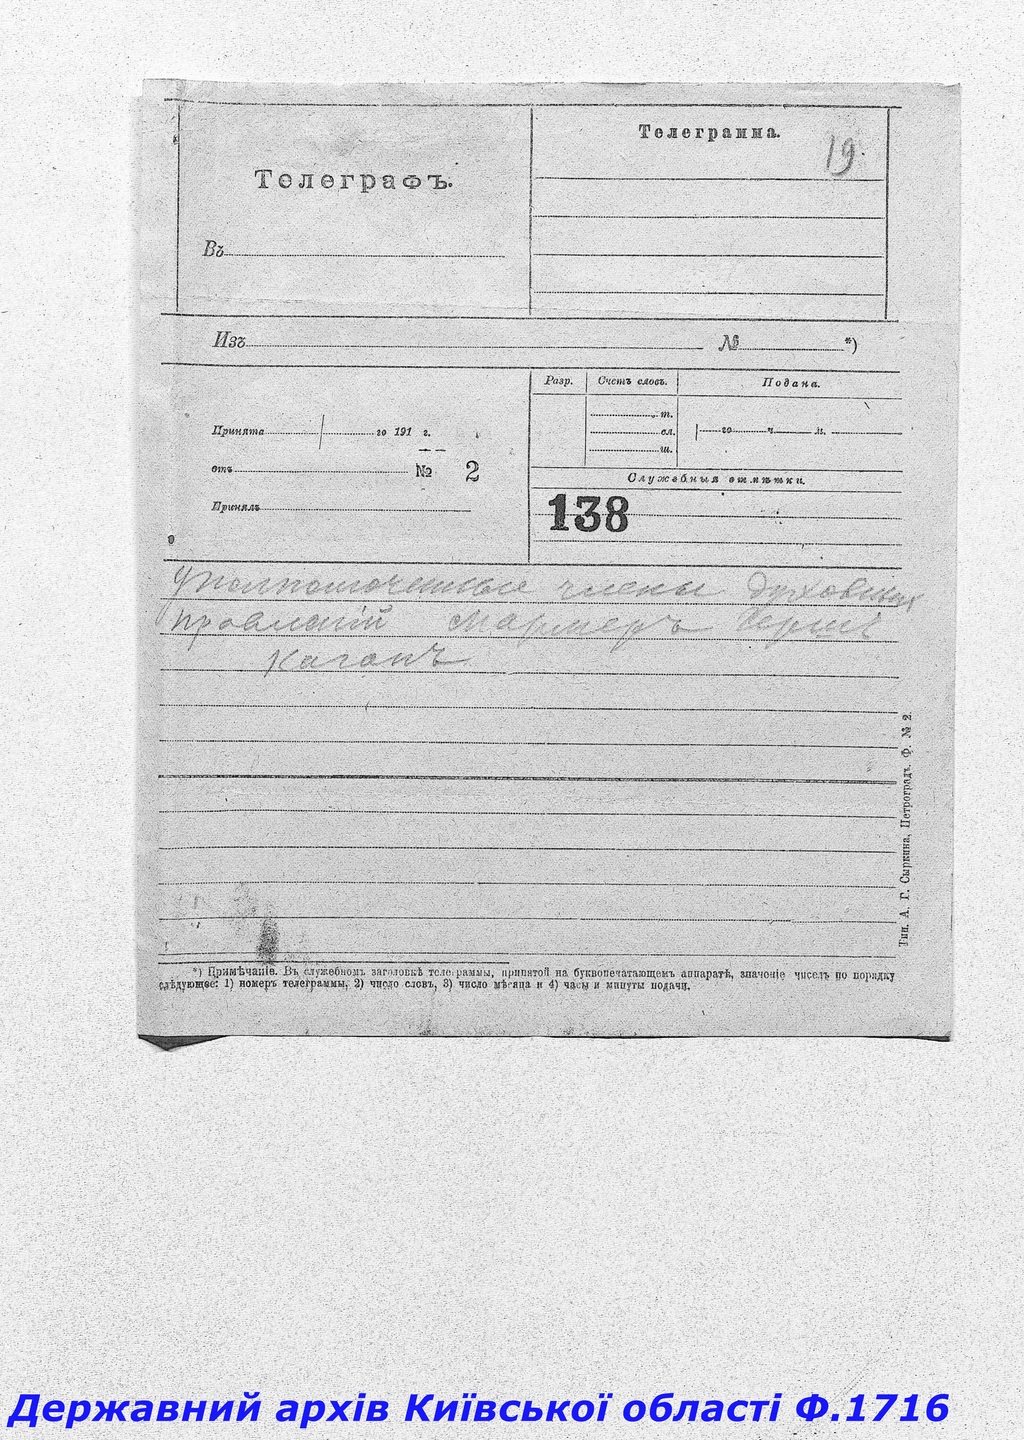 Телеграмма.
19
Телеграфъ.
Въ
Изъ № *)
Разр. Счетъ словъ. Подана.
т.
Принята го 191 г.
сл. го ч. м.
ш.
отъ № 2
Служебныя отмѣтки.
138
Принялъ
Уполномоченные члены духовныхъ
правленій Мармеръ
Каганъ
Тип. А. Г. Сыркина, Петроградъ. Ф. № 2.
*) Примѣчаніе. Въ служебномъ заголовкѣ телеграммы, принятой на буквопечатающемъ аппаратѣ, значеніе чиселъ по порядку
слѣдующее: 1) номеръ телеграммы, 2) число словъ, 3) число мѣсяца и 4) часы и минуты подачи.
Державний архів Київської області Ф.1716